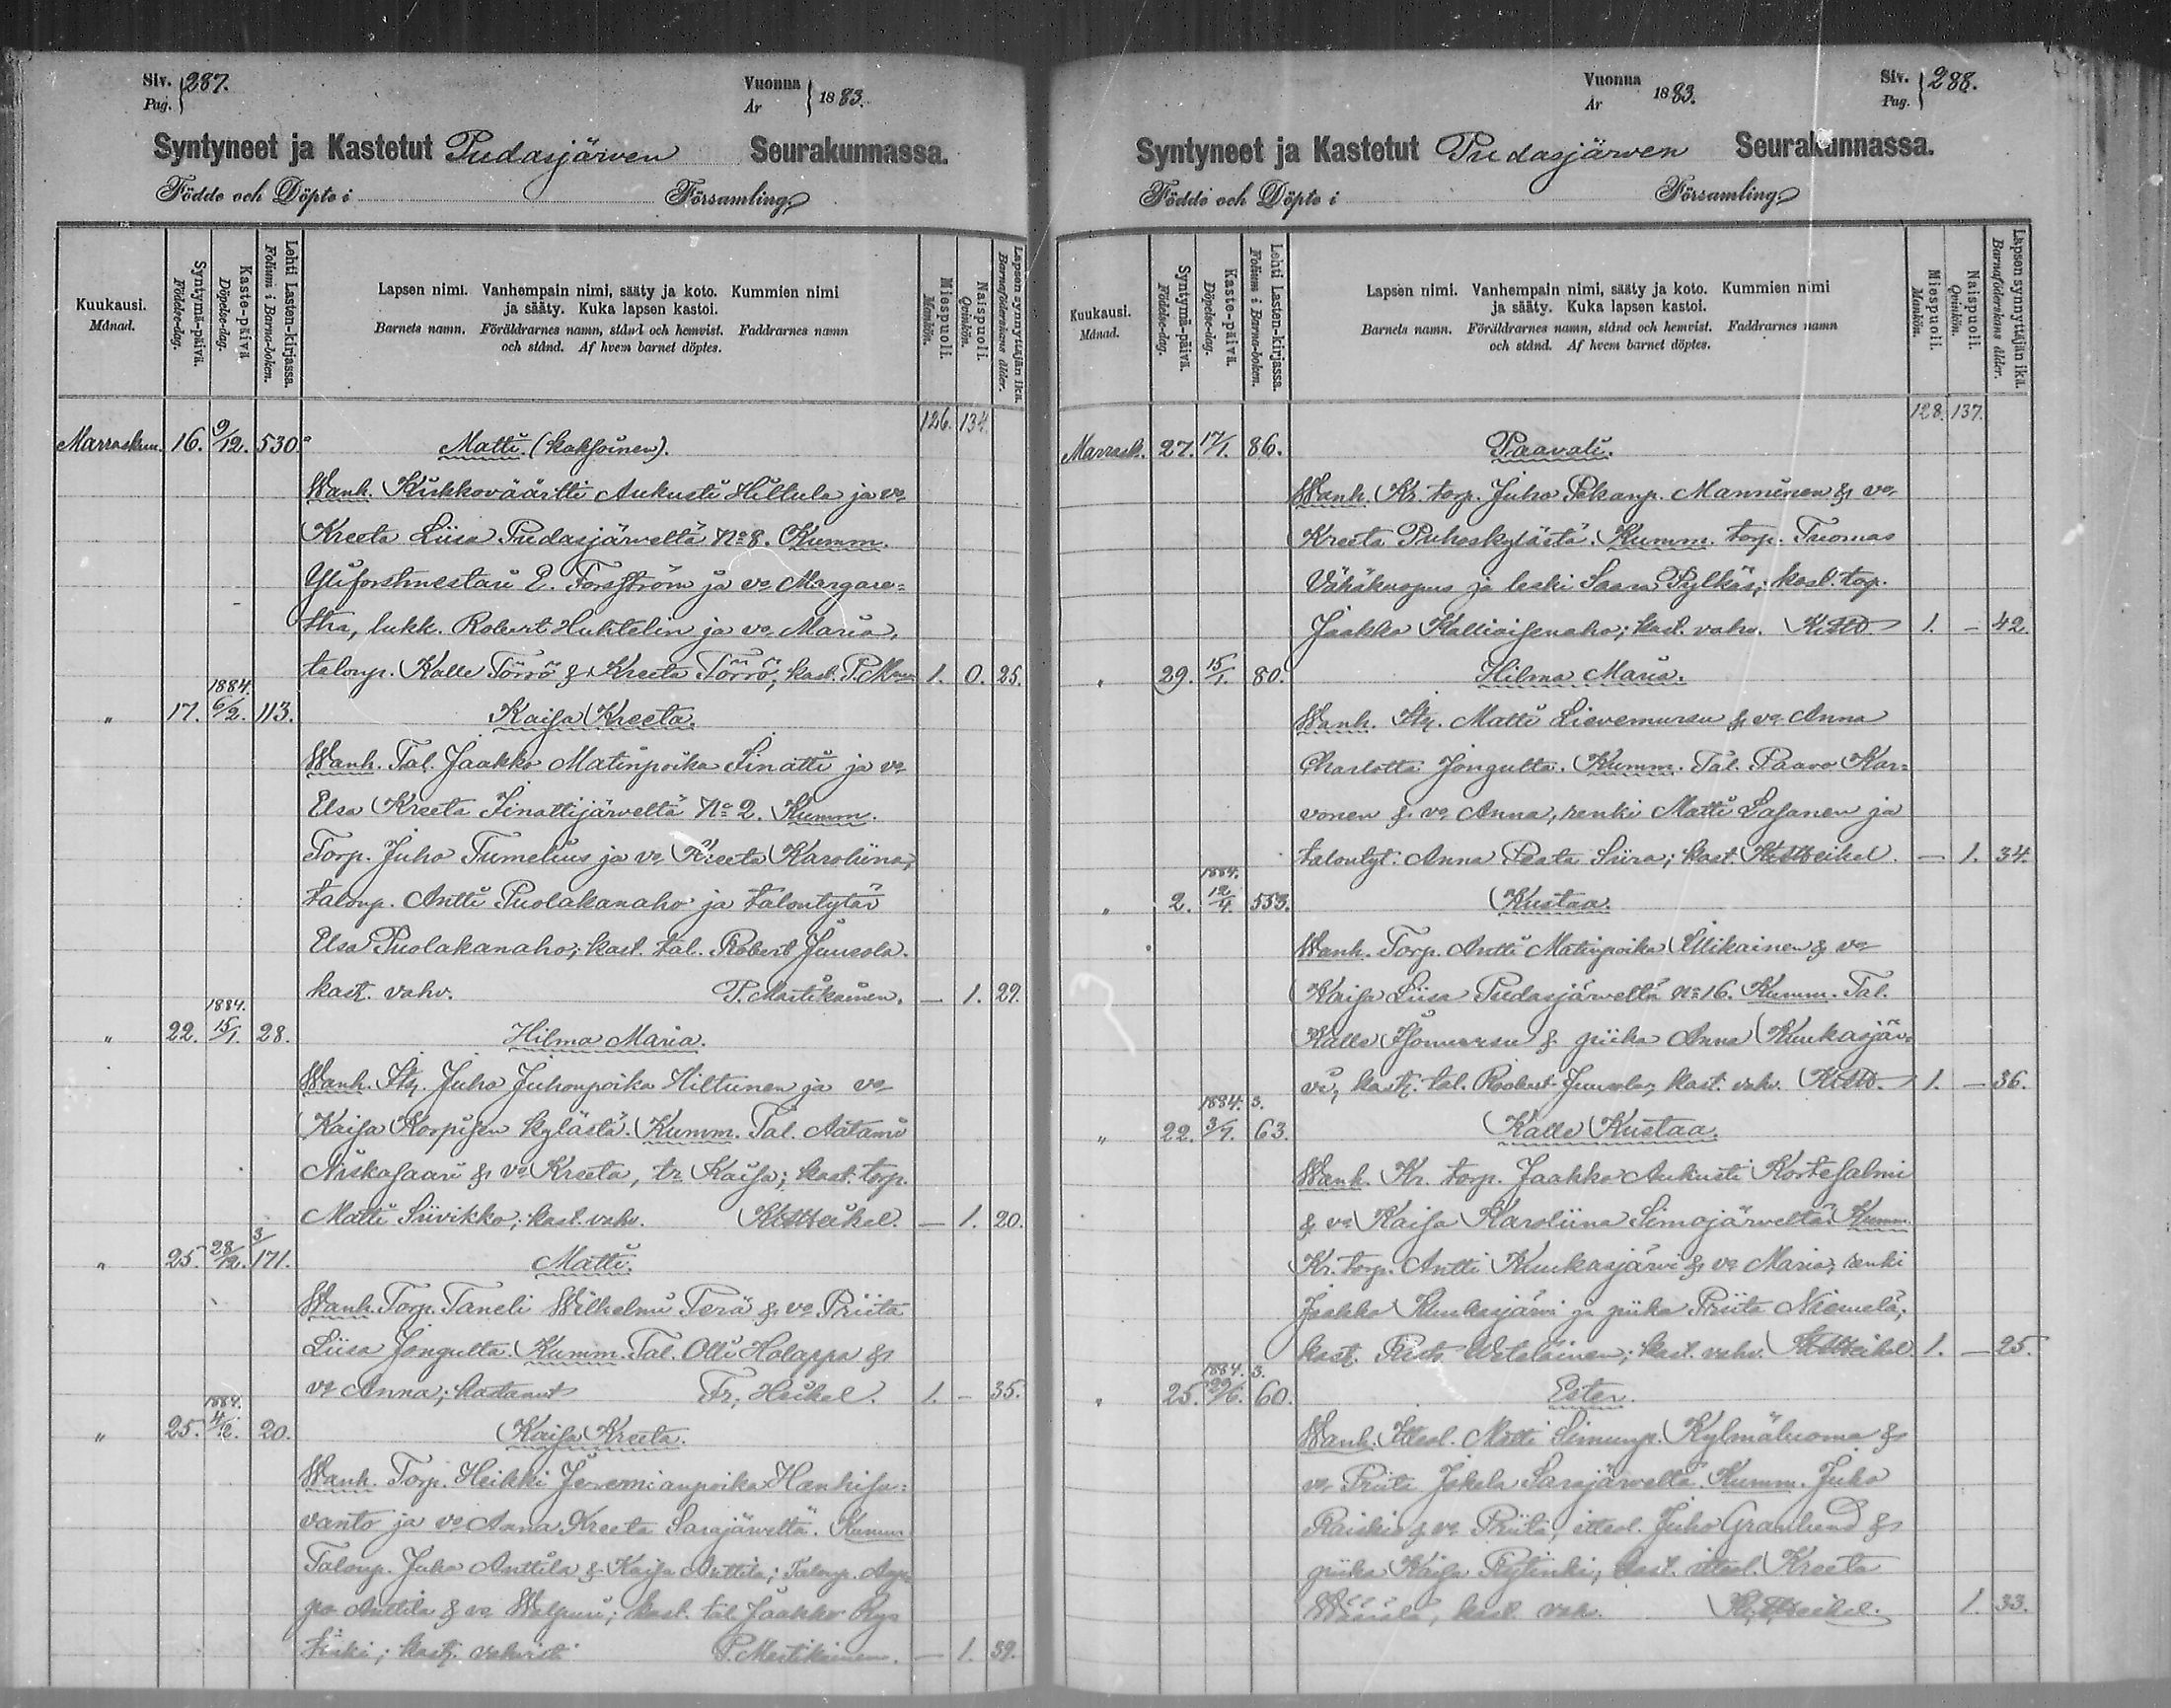 Siv. Pag. 287. Vuonna År 1883.
Syntyneet ja Kastetut Pudasjärven Seurakunnassa.
Födde och Döpte i Församling
Kuukausi. Månad.
Syntymä-päivä. Födelse-dag.
Kaste-päivä Döpelse-dag.
Lehti Lasten-kirjassa. Folium i Barna-boken.
Lapsen nimi. Vanhempain nimi, sääty ja koto. Kummien nimi
ja sääty. Kuka lapsen kastoi.
Barnets namn. Föräldrarnes namn, stånd och hemvist. Faddrarnes namn
och stånd. Af hvem barnet döptes.
Miespuoli. Mankön.
Naispuoli. Qvinkön.
Lapsen synnyttäjän ikä. Barnaföderskans ålder.
126. 134.
Marraskuu. 16. 9/12. 530. Matti. (kaksoinen).
Wanh. Kirkkovääritti Aukusti Hiltula ja vo
Kreeta Liisa Pudasjärveltä No 8. Kumm.
Yliforstmestari E. Forsström ja vo Margare-
tha, lukk. Robert Huhtelin ja vo Maria,
talonp. Kalle Törrö & Kreeta Törrö; kast. 1. 0. 25.
1884.
" 17. 6/2. 113. Kaisa Kreeta.
Wanh. Tal. Jaakko Matinpoika Iinatti ja vo
Elsa Kreeta Iinattijärveltä No 2. Kumm.
Torp. Juho Tumelius ja vo Kreeta Karoliina,
talonp. Antti Puolakanaho ja talontytär
Elsa Puolakanaho; kast. tal. Robert Juusola.
kast. vahv. P. Martikainen. — 1. 29.
1884.
" 22. 15/1. 28. Hilma Maria.
Wanh. Itq. Juho Juhonpoika Hiltunen ja vo
Kaisa Korpisen kylästä. Kumm. Tal. Aatami
Niskasaari & vo Kreeta, tr Kaisa; kast. torp.
Matti Siivikko; kast. vahv. Fr. Heikel. — 1. 20.
3/
" 25. 28/12. 171. Matti.
Wanh. Torp. Taneli Wilhelmi Terä & vo Priita
Liisa Jongulta. Kumm. Tal. Olli Holappa &
vo Anna; kastanut Fr. Heikel. 1. – 35.
1884.
" 25. 4/2. 20. Kaisa Kreeta.
Wanh. Torp. Heikki Jeremianpoika Hanhisu-
vanto ja vo Anna Kreeta Sarajärveltä. Kumm.
Talonp. Juho Anttila & Kaisa Anttila; Talonp. Aap-
po Anttila & vo Walpuri; kast. tal. Jaakko Ry-
tinki; kast. vahvisti P. Martikainen. — 1. 39.
Vuonna År 1883. Siv. Pag. 288.
Syntyneet ja Kastetut Pudasjärven Seurakunnassa.
Födde och Döpte i Församling
Kuukausi. Månad.
Syntymä-päivä. Födelse-dag.
Kaste-päivä. Döpelse-dag.
Lehti Lasten-kirjassa. Folium i Barna-boken.
Lapsen nimi. Vanhempain nimi, sääty ja koto. Kummien nimi
ja sääty. Kuka lapsen kastoi.
Barnets namn. Föräldrarnes namn, stånd och hemvist. Faddrarnes namn
och stånd. Af hvem barnet döptes.
Miespuoli. Mankön.
Naispuoli. Qvinkön.
Lapsen synnyttäjän ikä. Barnaföderskans ålder.
128. 137.
Marrask. 27. 17/1. 86. Paavali.
Wanh. Kr. torp. Juho Pekanp. Manninen & vo
Kreeta Puhoskylästä. Kumm. torp. Tuomas
Vähäkuopus ja leski Saara Pylkäs; kast. torp.
Jaakko Kallioisenaho; kast. vahv. 1. – 42.
" 29. 15/1. 80. Hilma Maria.
Wanh. Itq. Matti Lievemursu & vo Anna
Charlotta Jongulta. Kumm. Tal. Paavo Kar-
vonen & vo Anna, renki Matti Lasanen ja
talontyt. Anna Peata Siira; kast. Heikel. — 1. 34.
1884.
" 2. 12/4. 553. Kustaa.
Wanh. Torp. Antti Matinpoika Illikainen & vo
Kaisa Liisa Pudasjärveltä No 16. Kumm. Tal.
Kalle Isomursu & piika Anna Kuukasjär-
vi; kast. tal. Robert Juusola, kast. vahv. 1. – 36.
1884. 3.
" 22. 3/1. 63. Kalle Kustaa.
Wanh. Kr. torp. Jaakko Aukusti Kortesalmi
& vo Kaisa Karoliina Simojärveltä. Kumm.
Kr. torp. Antti Kuukasjärvi & vo Maria, renki
Jaakko Kuukasjärvi ja piika Priita Niemelä;
kast. Risto Weteläinen; kast. vahv. Heikel. 1. – 25.
1884. 3.
" 25. 29/6. 60. Ester.
Wanh. Ittesl. Matti Simunp. Kylmäluoma &
vo Priita Jokela Sarajärveltä. Kumm. Juho
Raiskio & vo Priita, ittesl. Juho Granlund &
piika Kaisa Rytinki; kast. ittesl. Kreeta
kast. vah. Heikel. 1. 33.